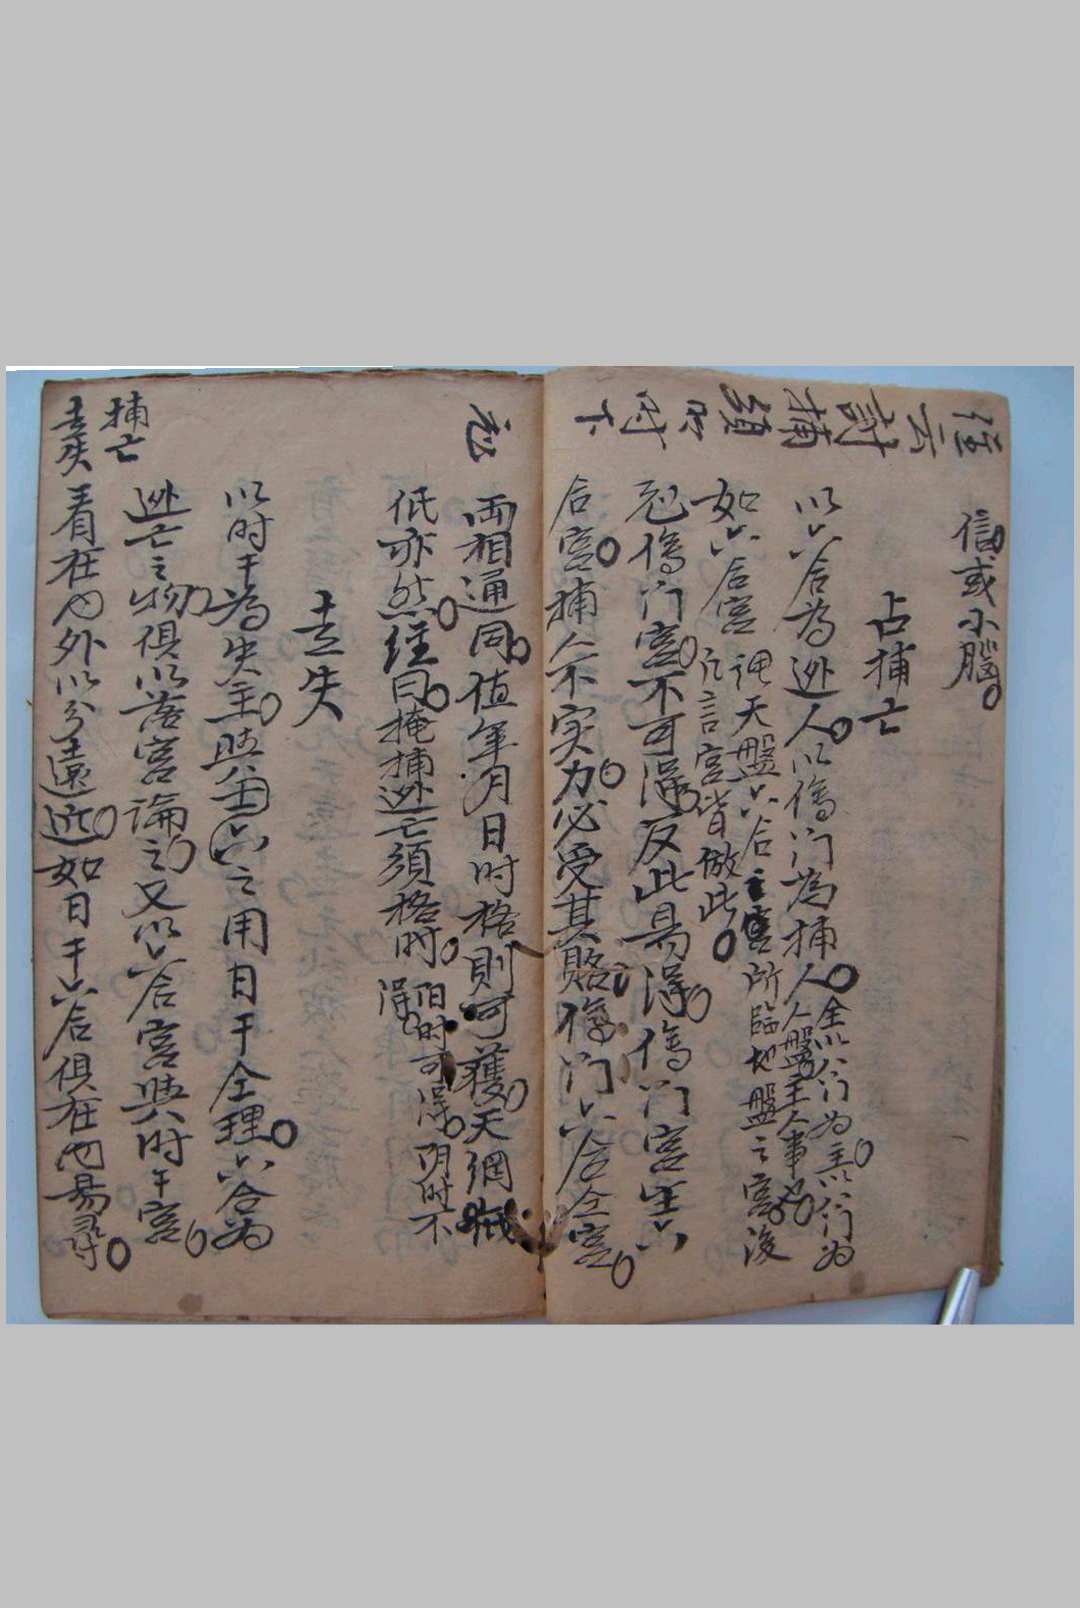 經云討捕須以时下
信或小腦
占捕亡
以六合为逃人以傷门為捕人
全以八门为主以八门为
人盤主人事也
如六合宮
謂天盤六合主宮所臨地盤之宮後
凡言宮皆倣此
尅傷门宮不可淂反此易淂傷门宮生六
合宮捕人不实力必受其賂傷门六合仝宮
両相通同值年月日时格則可獲天網
低亦然經曰掩捕逃亡須格时
阳时可淂阴时不
淂
走失
以时干為失主與六合之用日干仝理六合为
逃亡之物俱以落宮論之又以六合宮與时干宮
捕亡
走失
看在内外以分遠近如日干六合俱在内易尋